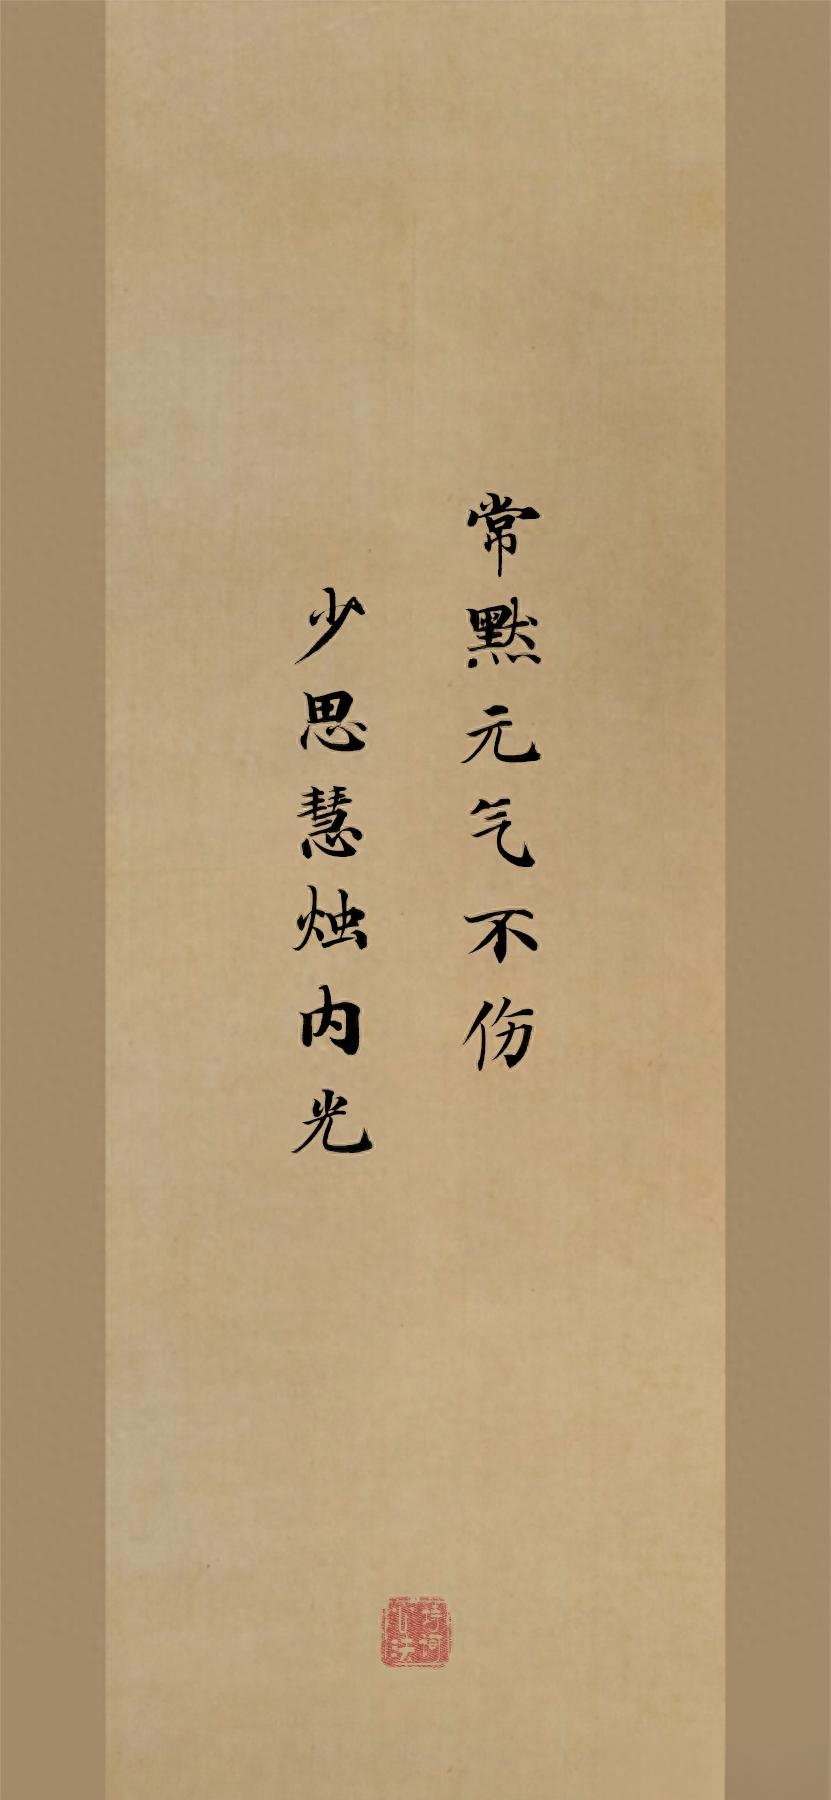 常默元气不伤
少思慧烛内光